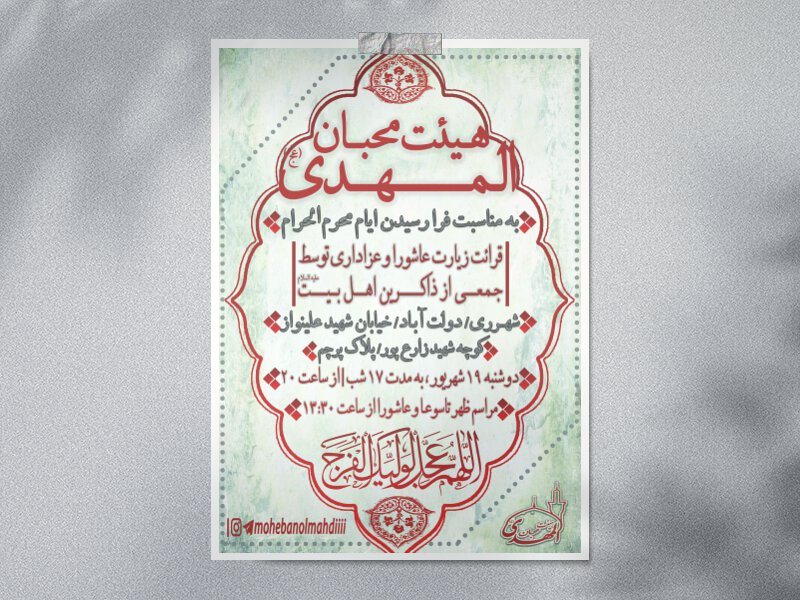 هیئت محبان
المهدی (عج)
به مناسبت فرا رسیدن ایام محرم الحرام
قرائت زیارت عاشورا و عزاداری توسط
جمعی از ذاکرین اهل بیت علیه السلام
شهرری/ دولت آباد/ خیابان شهید علینواز
کوچه شهید زارع پور/ پلاک پرچم
دوشنبه ۱۹ شهریور، به مدت ۱۷ شب | از ساعت ۲۰
مراسم ظهر تاسوعا و عاشورا از ساعت ۱۳:۳۰
اللهم عجل لولیک الفرج
mohebanolmahdiiii
محبان المهدی